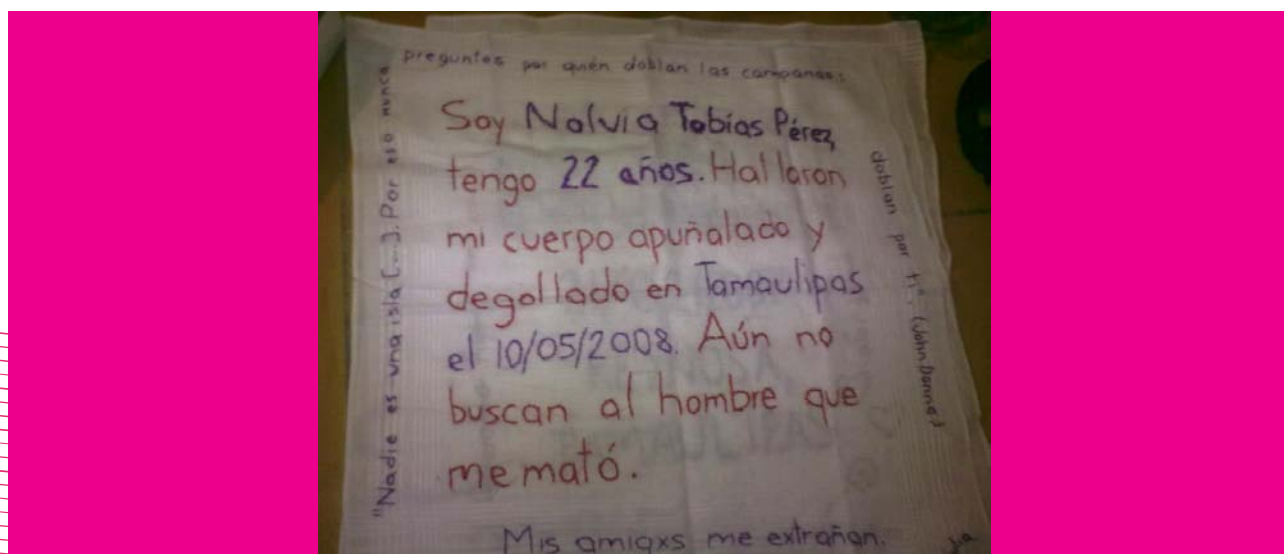 "Nadie es una isla [...]. Por eso nunca
preguntes por quién doblan las campanas:
doblan por ti". (John Donne)
Soy Nalvia Tobias Pérez,
tengo 22 años. Hallaron
mi cuerpo apuñalado y
degollado en Tamaulipas
el 10/05/2008. Aún no
buscan al hombre que
me mató.
Mis amigxs me extrañan.